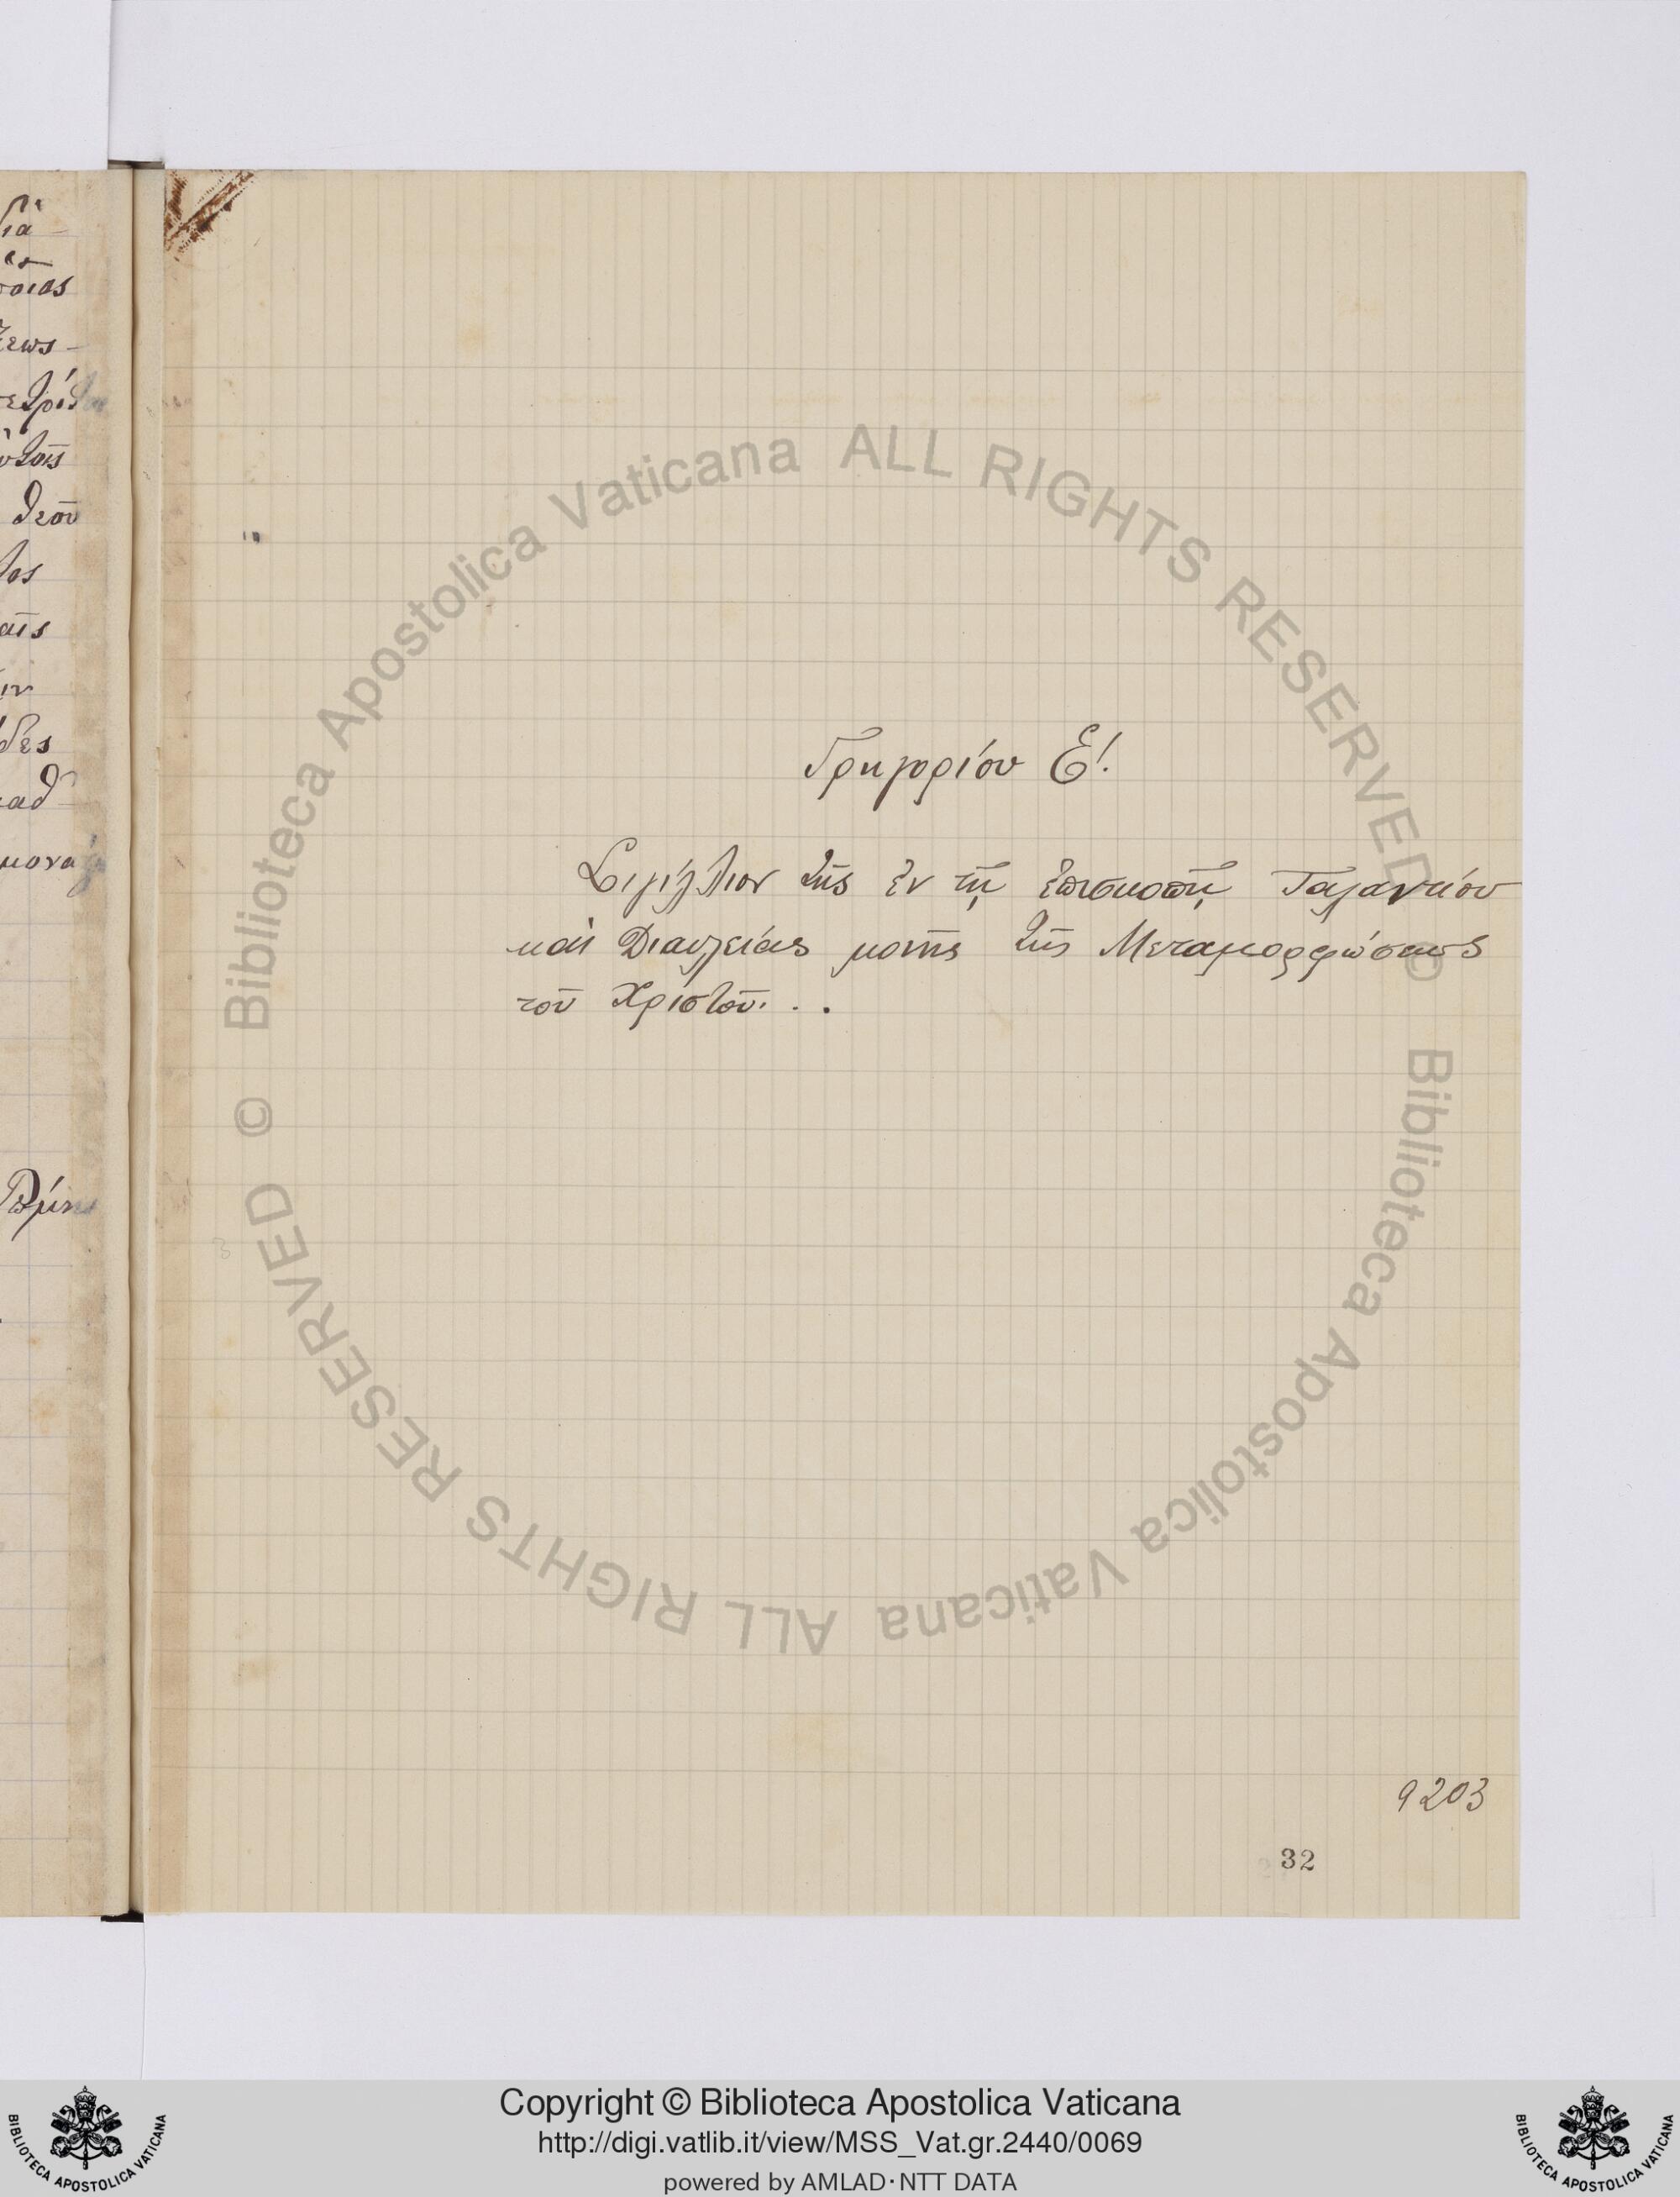 Γρηγορίου Ε΄.
Σιγίλλιον τῆς ἐν τῇ ἐπισκοπῇ Ταλαντίου
καὶ Διαυλείας μονῆς τῆς Μεταμορφώσεως
τοῦ Χριστοῦ. . .
9203
32
θεοῦ
© Biblioteca Apostolica Vaticana ALL RIGHTS RESERVED
© Biblioteca Apostolica Vaticana ALL RIGHTS RESERVED
Copyright © Biblioteca Apostolica Vaticana
http://digi.vatlib.it/view/MSS_Vat.gr.2440/0069
powered by AMLAD·NTT DATA
BIBLIOTECA APOSTOLICA VATICANA
BIBLIOTECA APOSTOLICA VATICANA